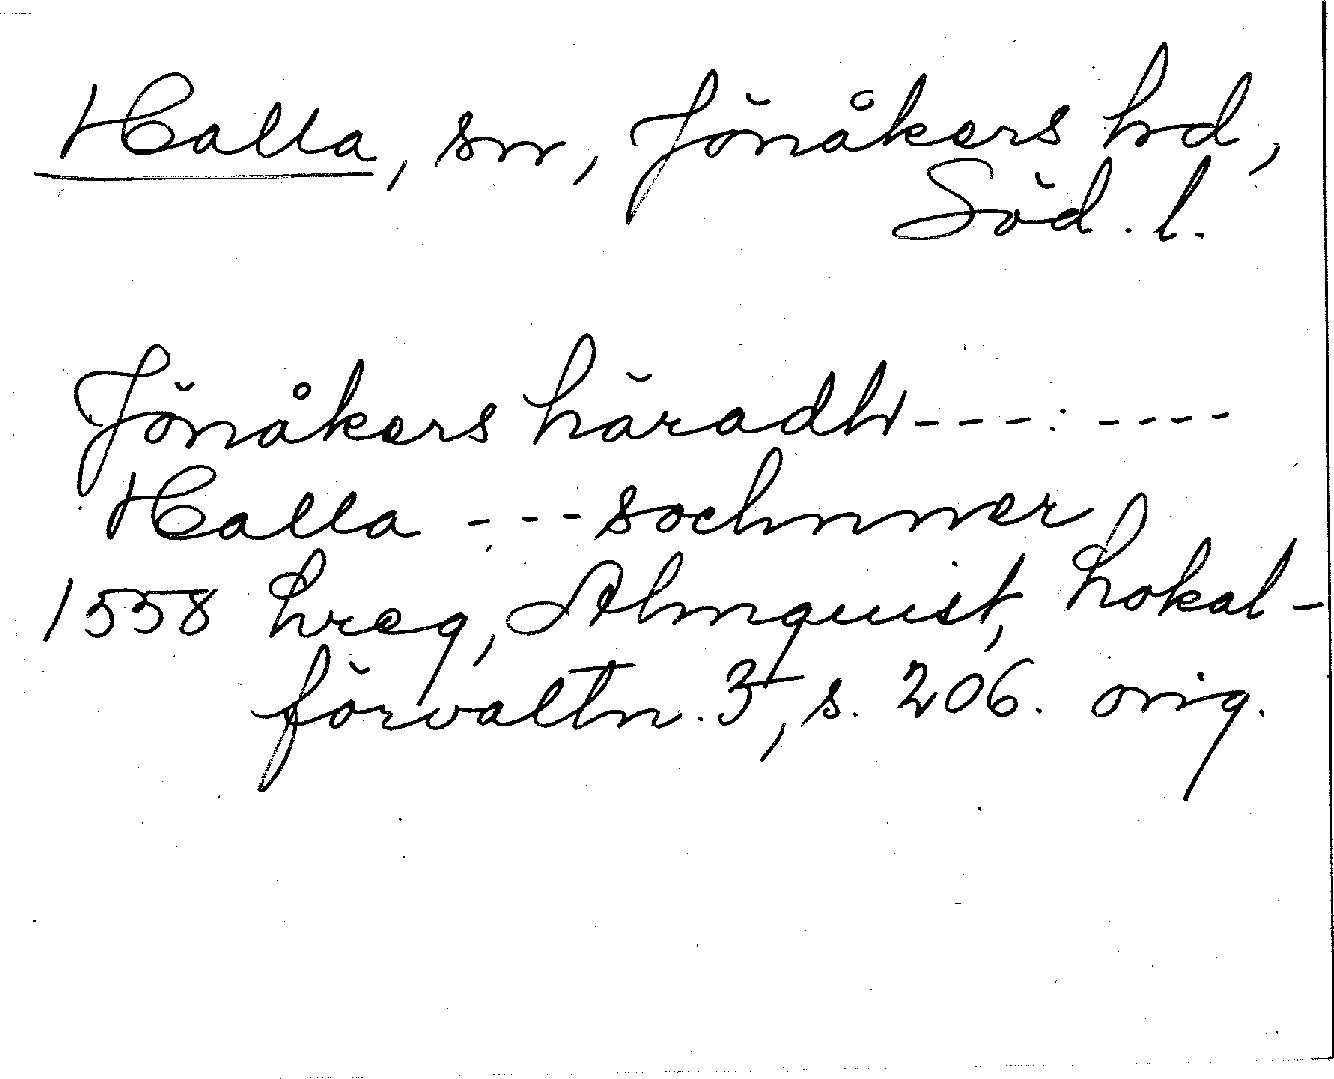 Halla, sn, Jönåkers hd,
Söd. l.
Jönåkers häradh ---:----
Halla --- sochnner
1558 hreg, Almquist, Lokal-
förvaltn. 3, s. 206. orig.